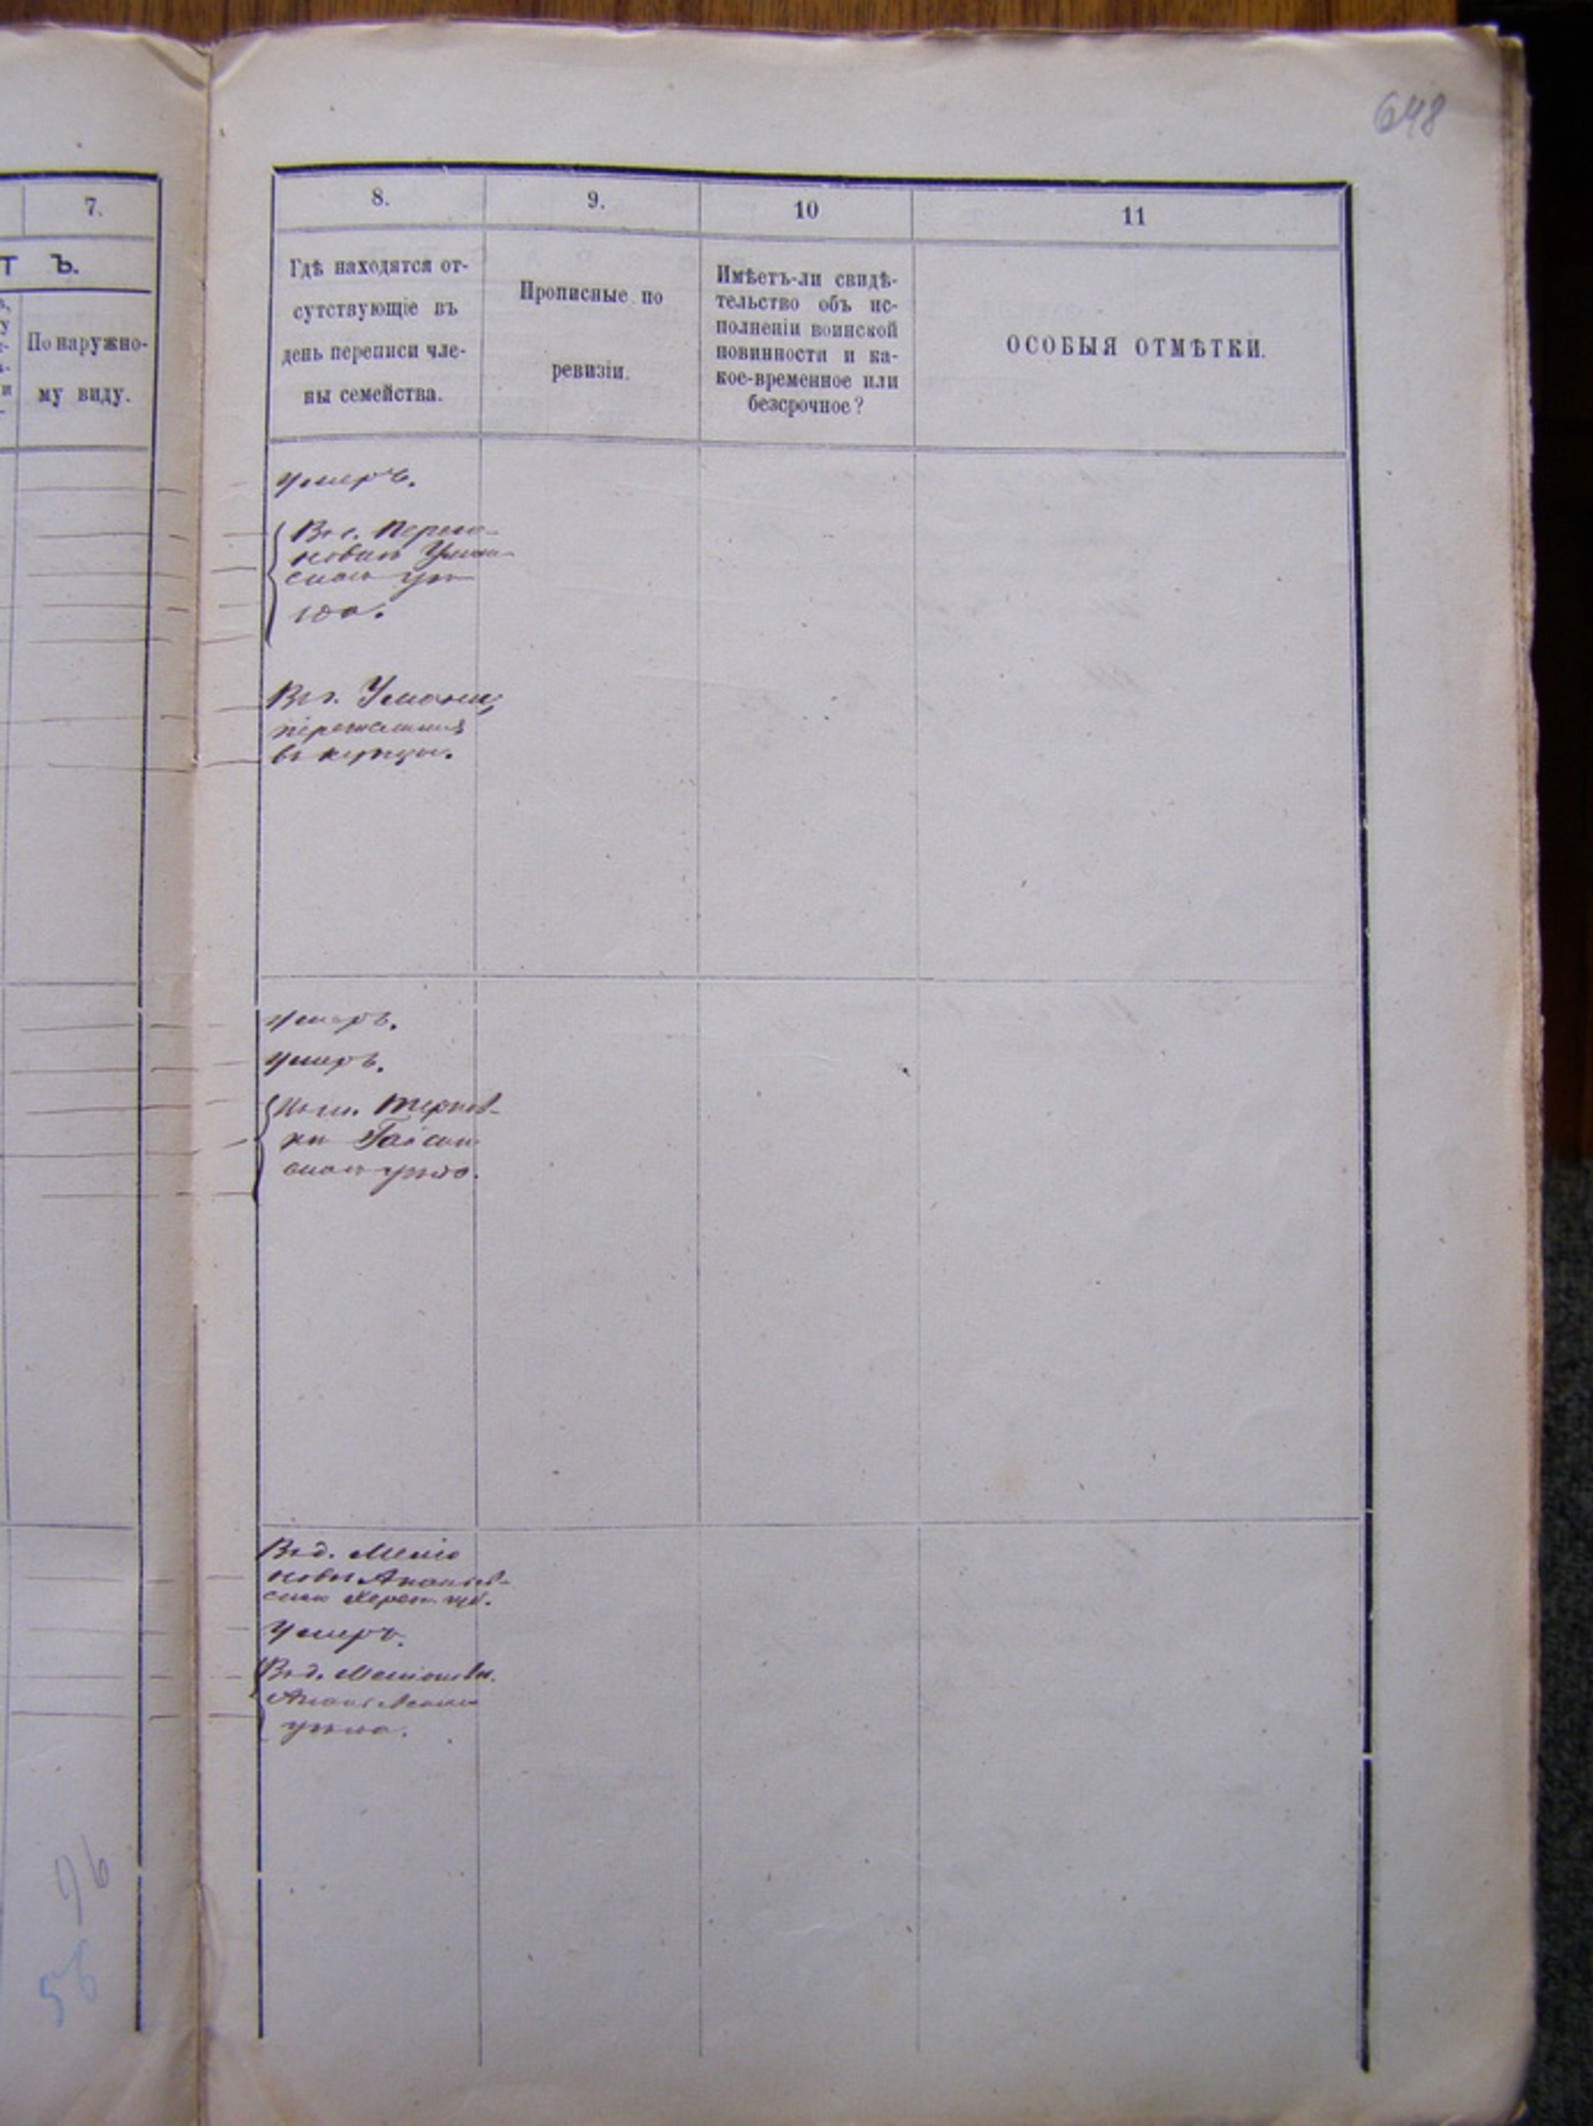 648
7.
Т Ъ.
По наружно-
му виду.
96
56
8.
9.
10
11
Гдѣ находятся от-
сутствующіе въ
день переписи чле-
ны семейства.
Прописные по
ревизіи.
Имѣетъ-ли свидѣ-
тельство объ ис-
полненіи воинской
повинности и ка-
кое-временное или
безсрочное?
ОСОБЫЯ ОТМѢТКИ.
умеръ.
Въ с. Перего-
новкѣ Уман-
скаго уѣ-
зда.
Въ г. Умани,
перечислился
въ купцы.
умеръ.
умеръ.
Въ м. Тернов-
кѣ Гайсин-
скаго уѣзда.
Въ д.
Ананьев-
скаго Херсон. губ.
Умеръ.
Въ д.
Ананьевскаго
уѣзда.